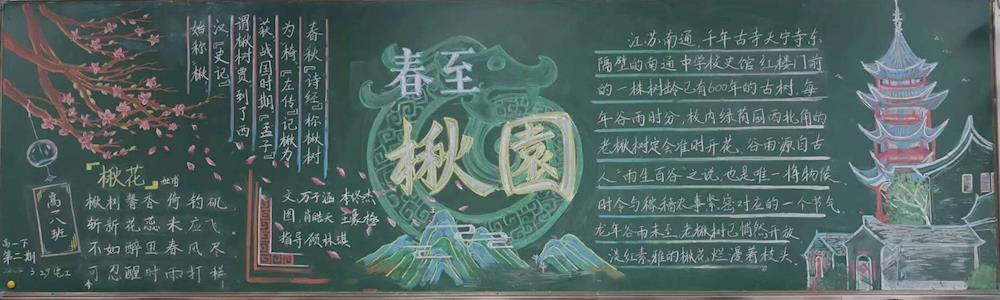 春秋『诗经』称楸树
为椅『左传』记楸为
萩战国时期『孟子』
谓楸树贾到了西
汉『史记』
始称楸
高一八班
楸花
楸树馨香倚钓矶
斩新花蕊未应飞
不如醉里春风尽
可忍醒时雨打稀
高一下
第二期
春至
楸園
文 万于涵
图 肖皓天
指导 顾林琪
江苏南通，千年古寺天宁寺东
隔壁的南通中学校史馆红楼门前
的一株树龄已有600年的古树，每
年谷雨时分，校内绿荫园西北角的
老楸树定会准时开花。谷雨源自古
人“雨生百谷”之说，也是唯一将物候、
时令与稼穑农事紧密对应的一个节气。
龙年谷雨未至，老楸树已悄然开放，
淡红素雅的楸花，烂漫着枝头。